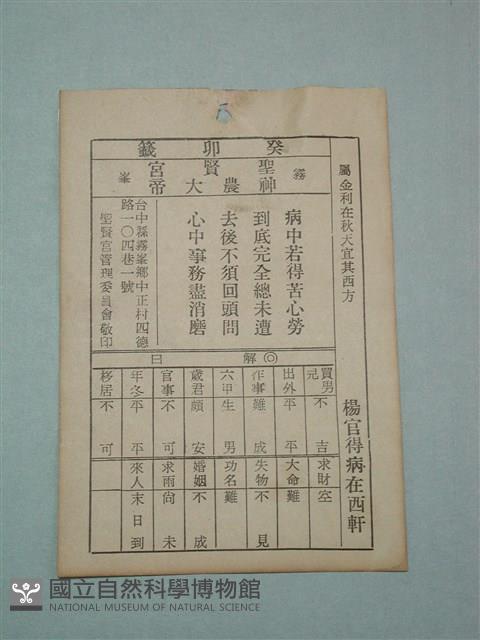 屬金利在秋天宜其西方
楊官得病在西軒
癸卯籤
霧峯
聖賢宮
神農大帝
病中若得苦心勞
到底完全總未遭
去後不須回頭問
心中事務盡消磨
台中縣霧峯鄉中正村四德
路一〇四巷一號
聖賢宮管理委員會敬印
解曰
買男兒 不吉
出外 平平
作事 難成
六甲 生男
歲君 頗安
官事 不可
年冬 平平
移居 不可
求財 空
大命 難
失物 不見
功名 難
婚姻 不成
求雨 尚未
來人 末日到
國立自然科學博物館
NATIONAL MUSEUM OF NATURAL SCIENCE